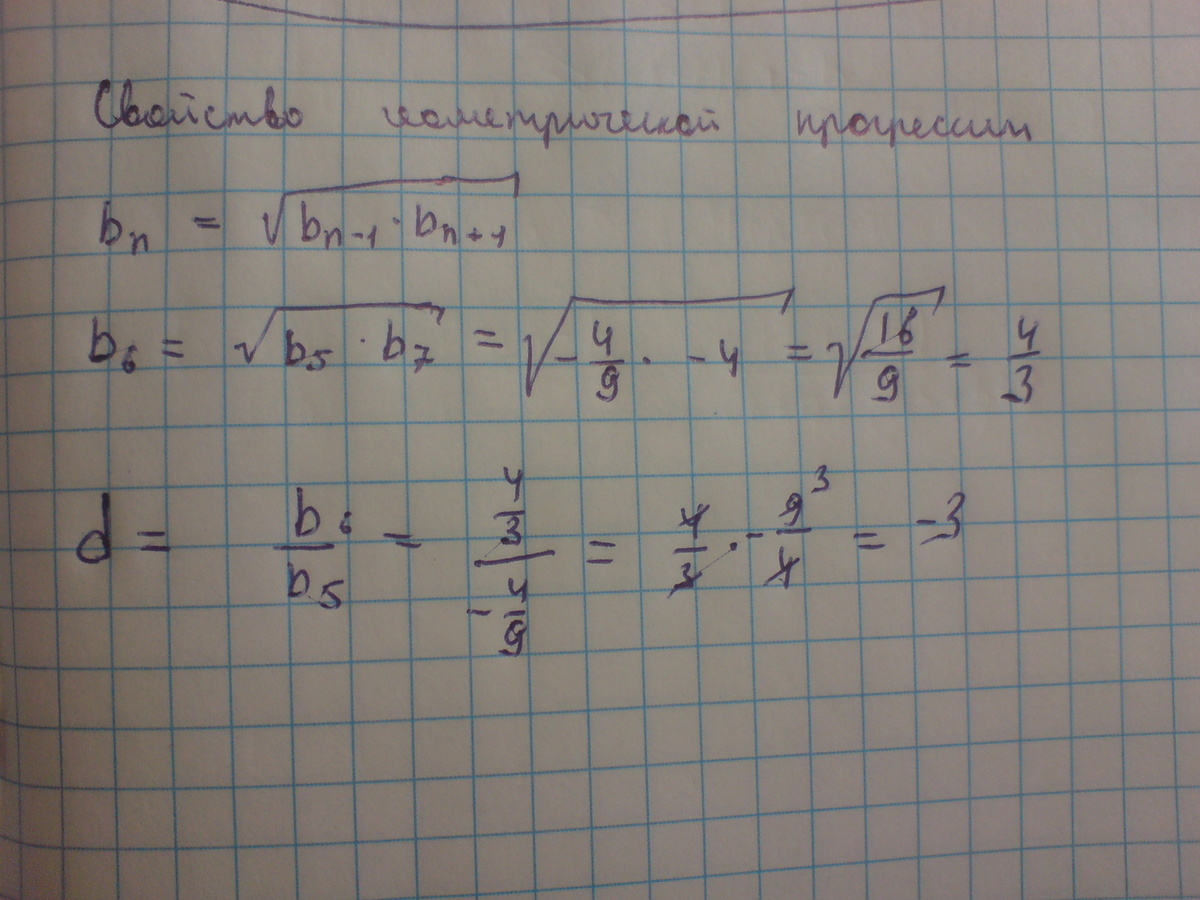 Свойство геометрической прогрессии
bₙ = √(bₙ₋₁ · bₙ₊₁)
b₆ = √(b₅ · b₇) = √(-4/9 · -4) = √(16/9) = 4/3
d = b₆/b₅ = (4/3)/(-4/9) = 4/3 · -9/4 ³ = -3